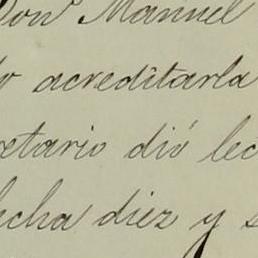 Don Manuel
o acreditarla
etario dió lec
echa diez y s